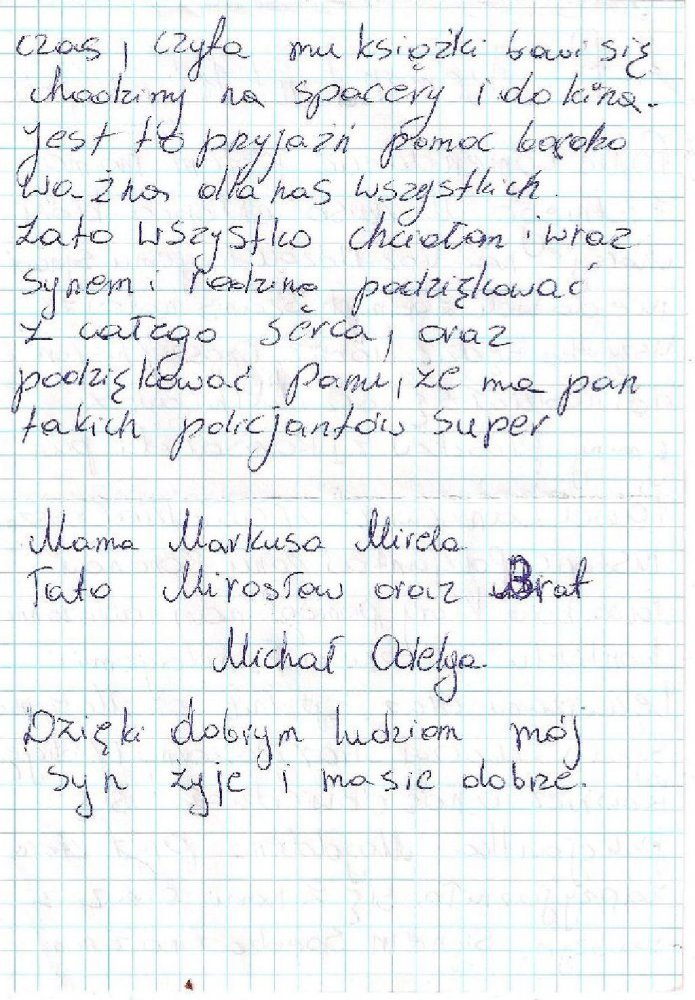 czas, czyta mu książki bawi się
chodzimy na spacery i do kina.
jest to przyjaźń pomoc bardzo
ważna dla nas wszystkich.
Zato wszystko chciałam i wraz
synem i rodziną podziękować
z całego serca, oraz
podziękować Panu, że ma pan
takich policjantów super
Mama Markusa Mirela
Tato Mirosław oraz Brat
Michał Odelga.
Dzięki dobrym ludziom mój
syn żyje i masie dobrze.